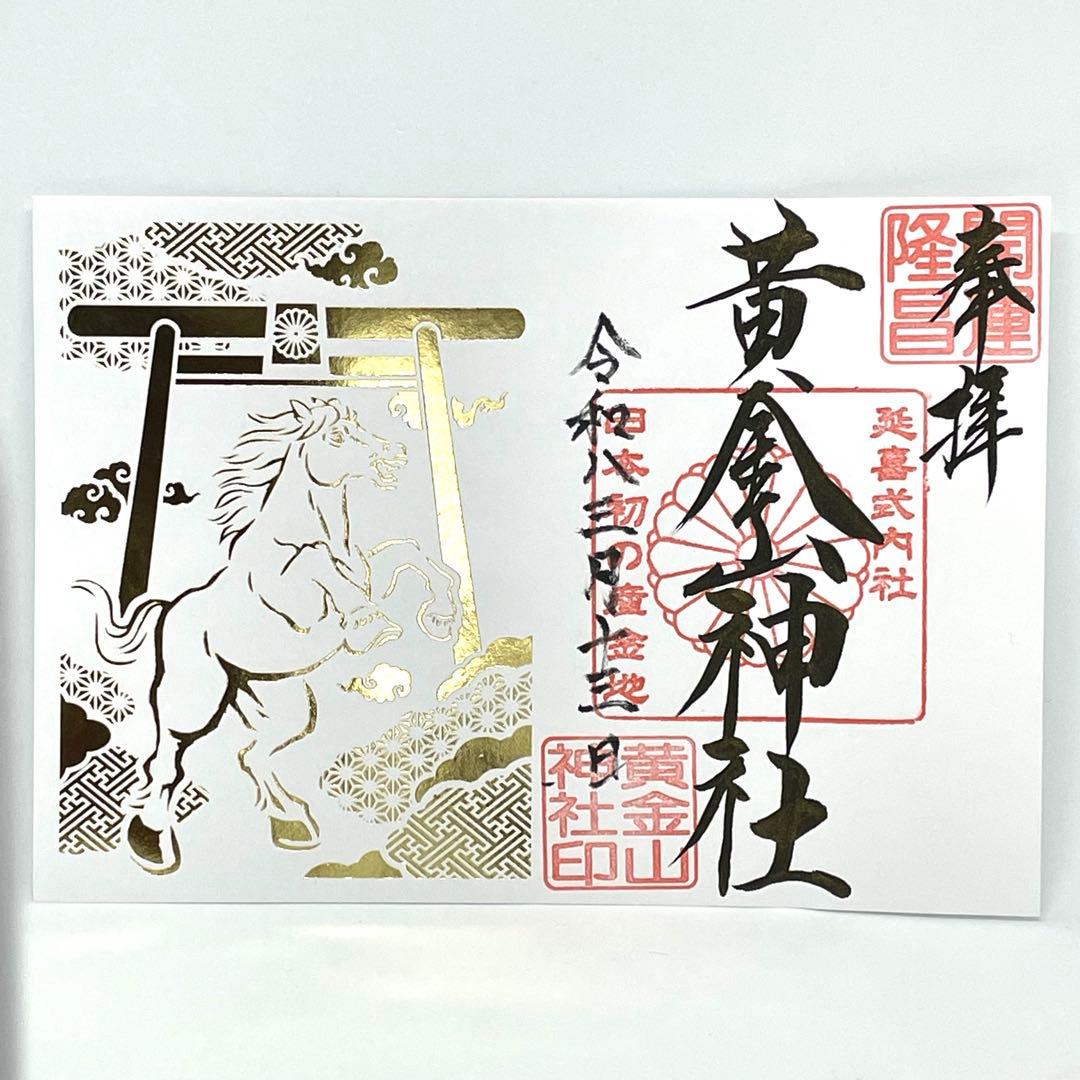 奉拝
開運
隆昌
黄金山神社
延喜式内社
日本初の産金地
令和八三月十三日
黄金山
神社印